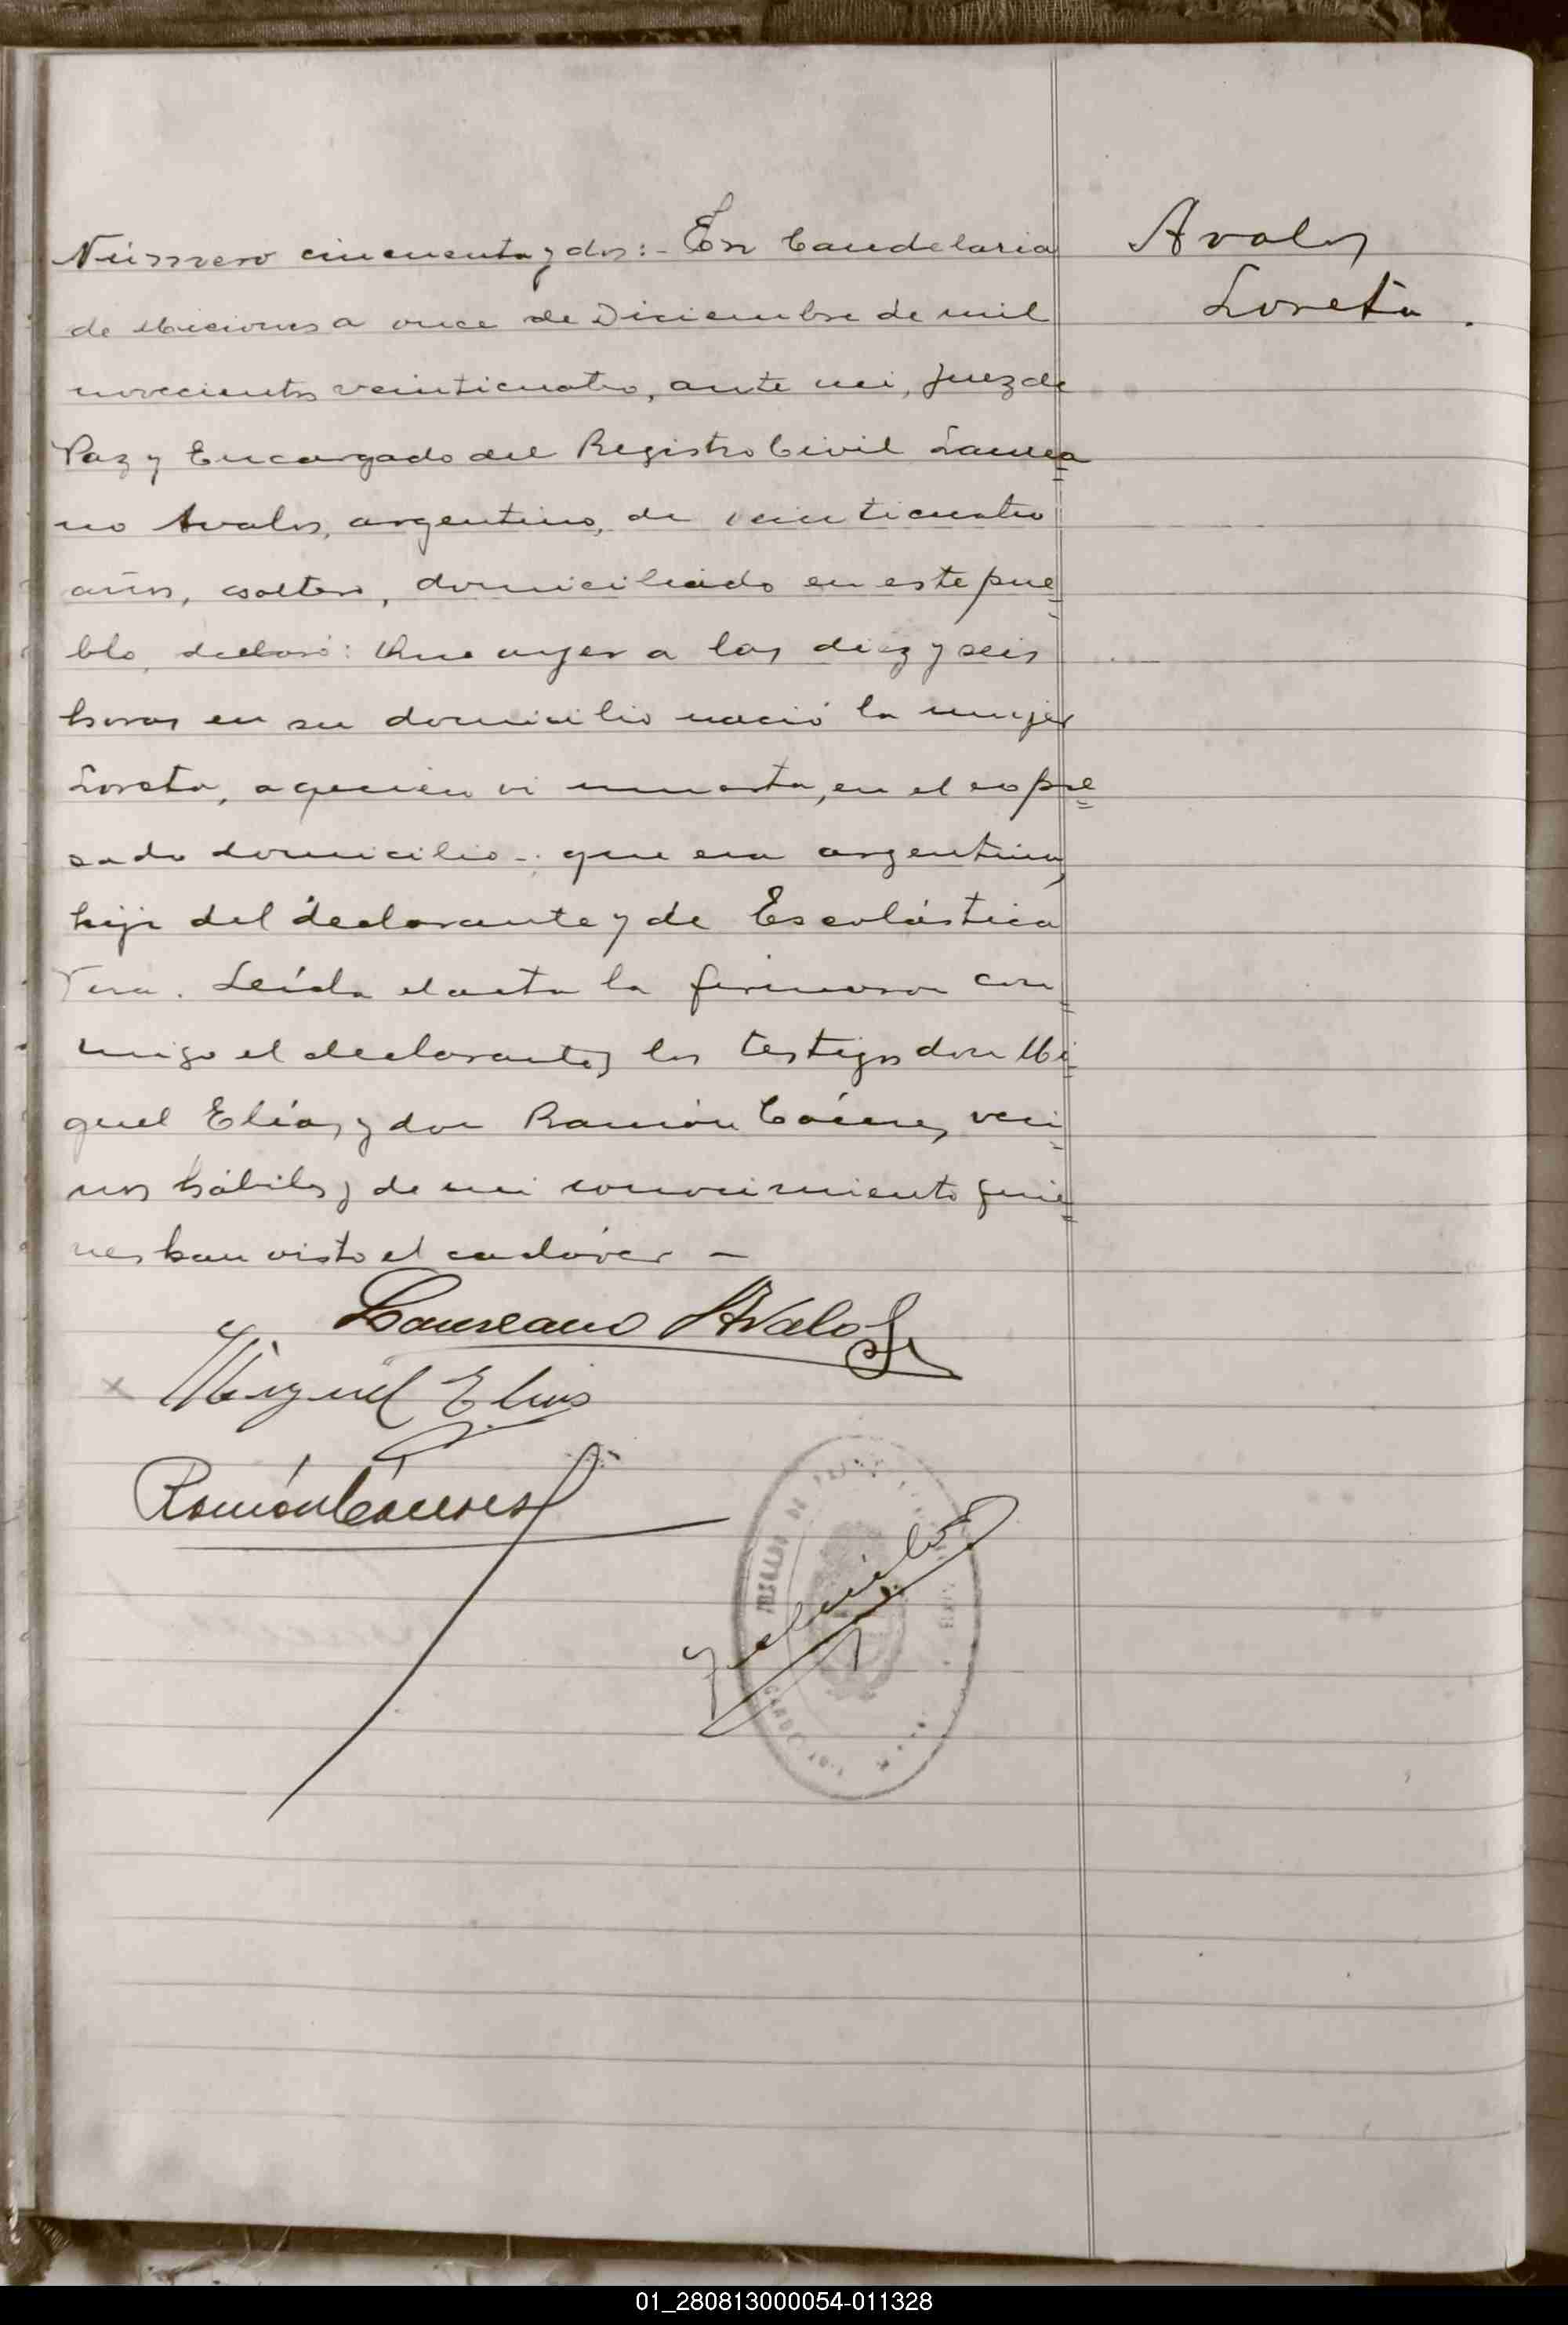 Número cincuenta y dos:- En Candelaria
de Misiones a once de Diciembre de mil
novecientos veinticuatro, ante mi, Juez de
Paz y Encargado del Registro Civil Laurea
no Avalos, argentino, de veinticuatro
años, soltero, domiciliado en este pue
blo, declaró: Que ayer a las diez y seis
horas en su domicilio nació la mujer
Loreta, a quien vi muerta, en el expre
sado domicilio-; que era argentina,
hija del declarante y de Escolástica
Vera. Leída el acta la firmaron con
migo el declarante y los testigos don Mi
guel Elías y don Ramón Cáceres, veci
nos hábiles y de mi conocimiento quie
nes han visto el cadáver -
Avalos
Loreta.
Laureano Avalos
x Miguel Elias
Ramón Cáceres
JUZGADO DE
01_280813000054-011328